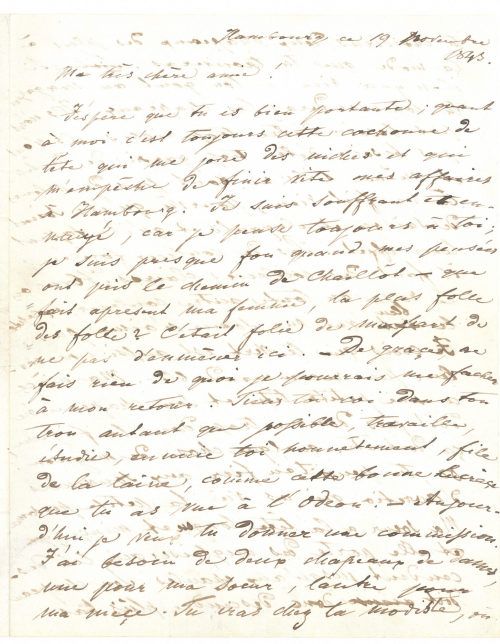 Hambourg ce 19 Novembre
1843.
Ma très chère amie!
J'espère que tu es bien portante; quant
à moi c'est toujours cette cochonne de
tête qui me joue des niches et qui
m'empêche de finir vite mes affaires
à Hambourg. Je suis souffrant et en-
nuyé, car je pense toujours à toi;
je suis presque fou quand mes pensées
ont pris le chemin de Chaillot – que
fait apresent ma femme la plus folle
des folles? C'était folie de ma part de
ne pas t'emmener ici. – De grâce ne
fais rien de quoi je pourrais me facher
à mon retour. Tiens toi coi dans ton
trou autant que possible, travaille,
étudie, ennuie toi honnêtement, file
de la laine, comme cette bonne Lucrèce
que tu as vue à l'Odéon. – Aujour-
d'hui je veux tu donner une commission.
J'ai besoin de deux chapeaux de dames
une pour ma soeur, l'autre pour
ma nièce. Tu iras chez la modiste, ou